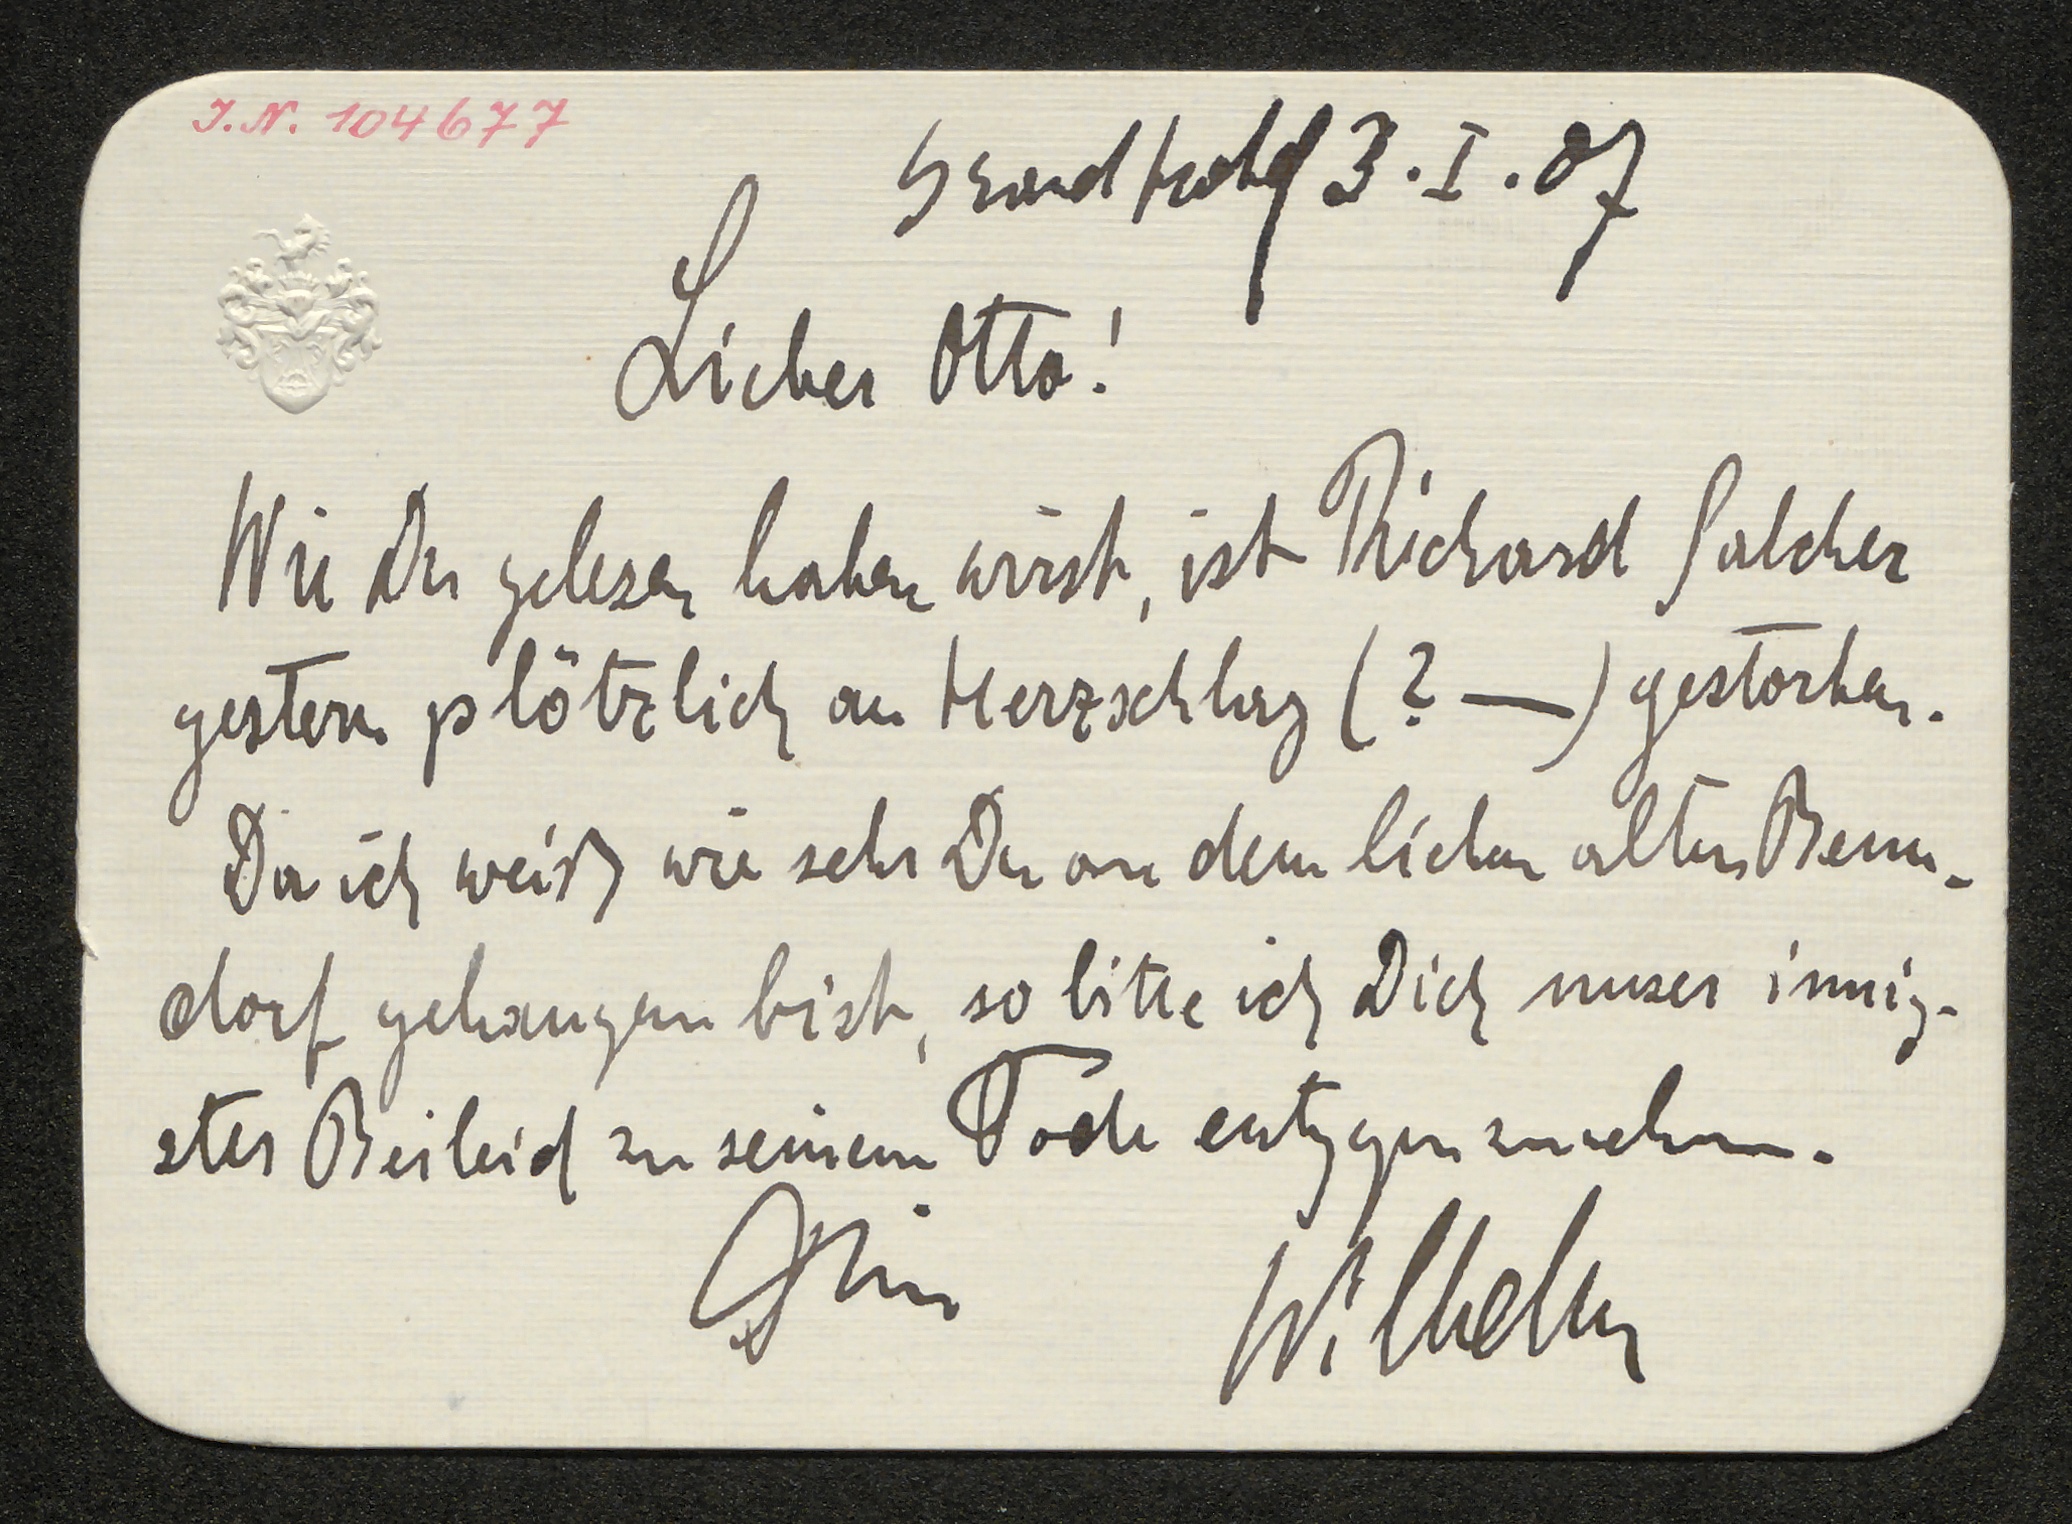 I.N. 104677
3.I.07
Lieber Otto!
Wie Du gelesen haben wirst, ist Richard Salcher
gestern plötzlich an Herzschlag (? —) gestorben.
Da ich weiß wie sehr Du an dem lieben alten Benn-
dorf gehangen bist, so bitte ich Dich unser innig-
stes Beileid zu seinem Tode entgegenzunehmen.
Dein Wilhelm